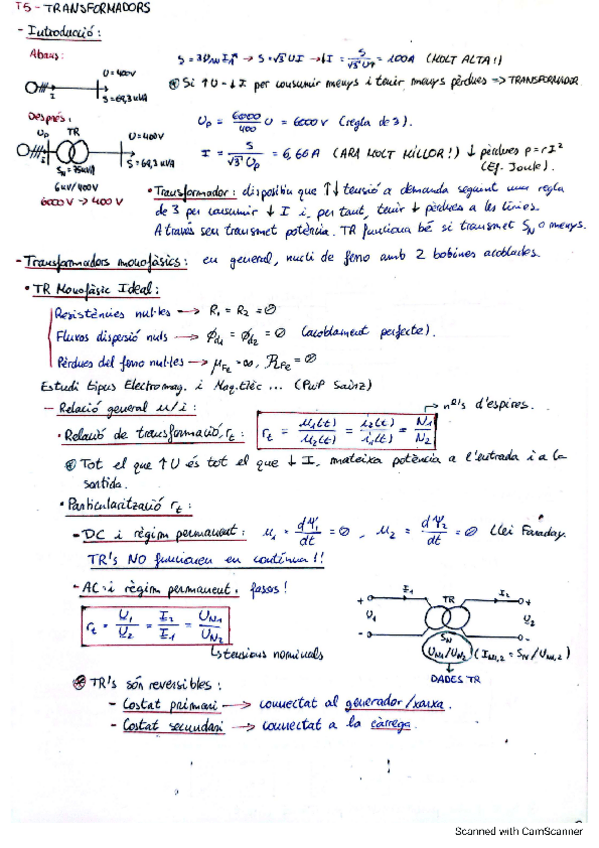 T5 - TRANSFORMADORS
- Introducció:
Abans:
S = 3U_N I_1* → S = √3 U I → ↓I = S/(√3 U↑) = 100A (MOLT ALTA!)
U = 400V
S = 69,3 kVA
Si ↑U - ↓I per consumir menys i tenir menys pèrdues => TRANSFORMADOR
Després:
U_p = 6000/400 U = 6000 V (regla de 3).
U_p TR U = 400V
I = S/(√3 U_p) = 6,66 A (ARA MOLT MILLOR!) ↓ pèrdues p = r I²
(Ef. Joule).
S = 69,3 kVA
S_N = 75kVA
6kV/400V
6000V → 400V
• Transformador: dispositiu que ↑↓ tensió a demanda seguint una regla
de 3 per consumir ↓ I i, per tant, tenir ↓ pèrdues a les línies.
A través seu transmet potència. TR funciona bé si transmet S_N o menys.
- Transformadors monofàsics: en general, nucli de ferro amb 2 bobines acoblades.
• TR Monofàsic Ideal:
Resistències nul·les → R_1 = R_2 = 0
Fluxos dispersió nuls → Φ_d1 = Φ_d2 = 0 (acoblament perfecte).
Pèrdues del ferro nul·les → μ_Fe = ∞, R_Fe = 0
Estudi tipus Electromag. i Maq. Elèc ... (PWP Sainz)
- Relació general u/i:
nº's d'espires.
• Relació de transformació, r_t: r_t = u_1(t)/u_2(t) = i_2(t)/i_1(t) = N_1/N_2
Tot el que ↑U és tot el que ↓ I, mateixa potència a l'entrada i a la
sortida.
• Particularització r_t:
- DC i règim permanent: u_1 = dΨ_1/dt = 0, u_2 = dΨ_2/dt = 0 Llei Faraday.
TR's NO funcionen en contínua!!
- AC i règim permanent. fasors!
r_t = U_1/U_2 = I_2/I_1 = U_N1/U_N2
tensions nominals
I_1 TR I_2
U_1 U_2
S_N
U_N1/U_N2 (I_N1,2 = S_N/U_N1,2)
DADES TR
TR's són reversibles:
- Costat primari → connectat al generador/xarxa.
- Costat secundari → connectat a la càrrega.
Scanned with CamScanner